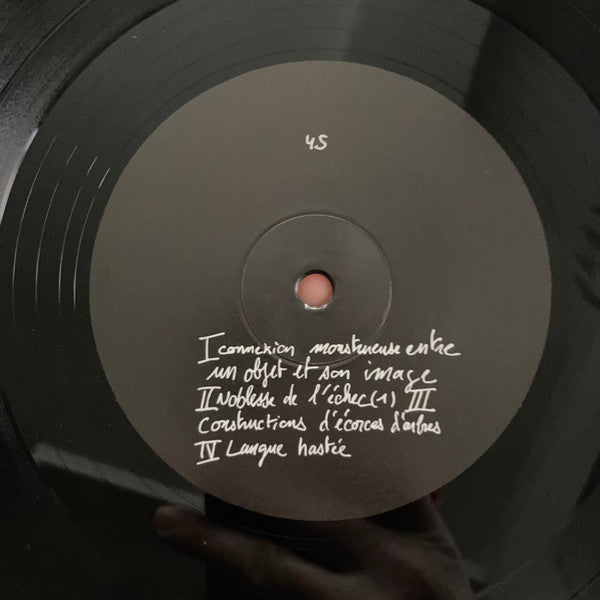 45
I connexion monstrueuse entre
un objet et son image
II Noblesse de l'échec (1) III
Constructions d'écorces d'arbres
IV Langue hastée